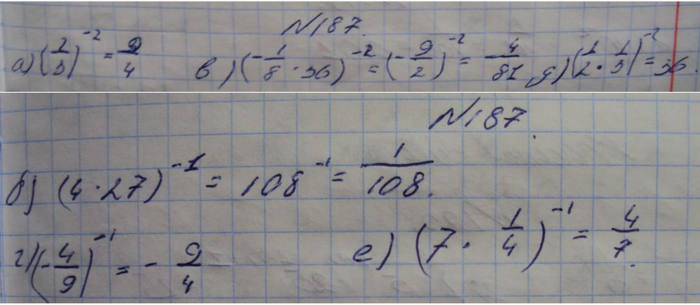 N187.
а) (2/3)^-2 = 9/4 в) (-1/8 · 36)^-2 = (-9/2)^-2 = -4/81 д) (1/2 · 1/3)^-2 = 36.
N187.
б) (4 · 27)^-1 = 108^-1 = 1/108.
г) (-4/9)^-1 = -9/4 е) (7 · 1/4)^-1 = 4/7.